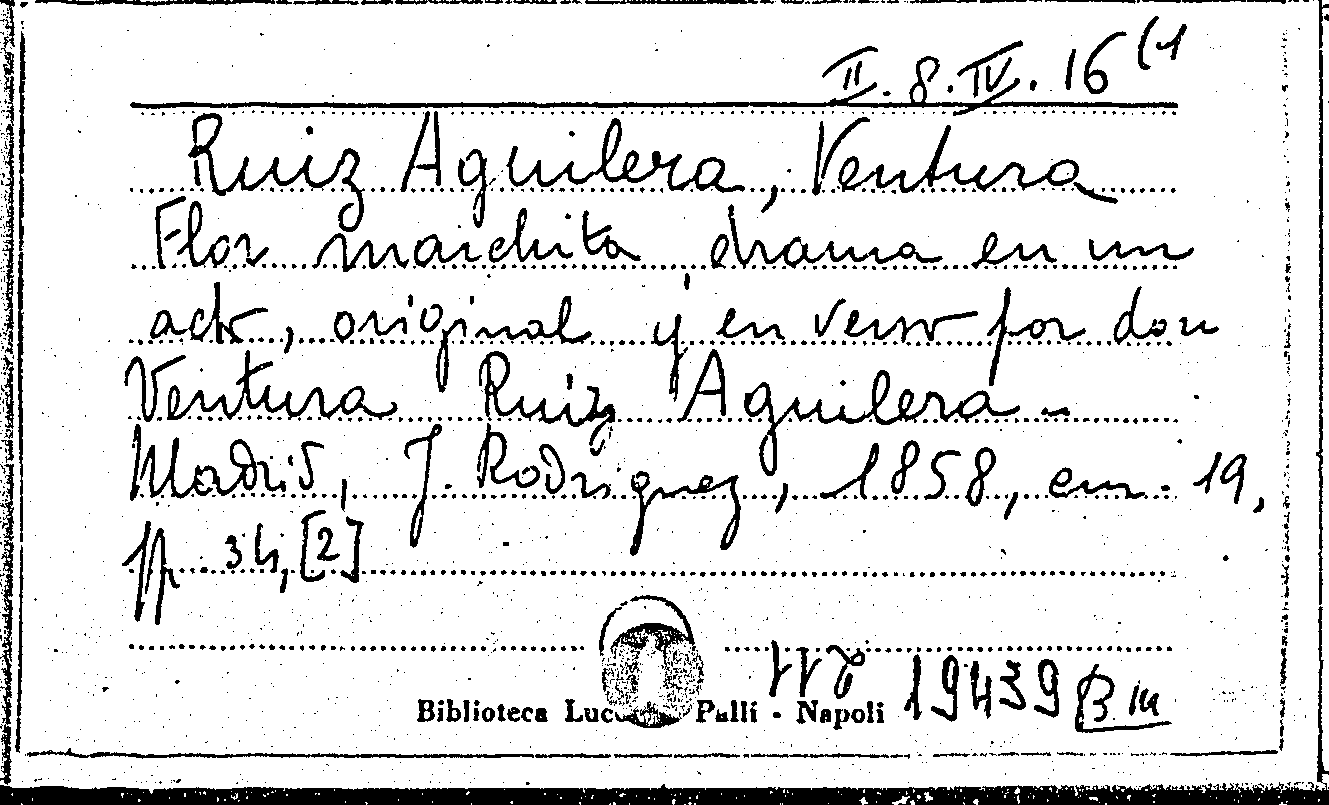 II. 8. IV. 16 (1
Ruiz Aguilera, Ventura
Flor marchita drama en un
acto, original y en verso por don
Ventura Ruiz Aguilera -
Madrid, J. Rodriguez, 1858, cm. 19,
pp. 34, [2]
19439 B III
Biblioteca Palli - Napoli